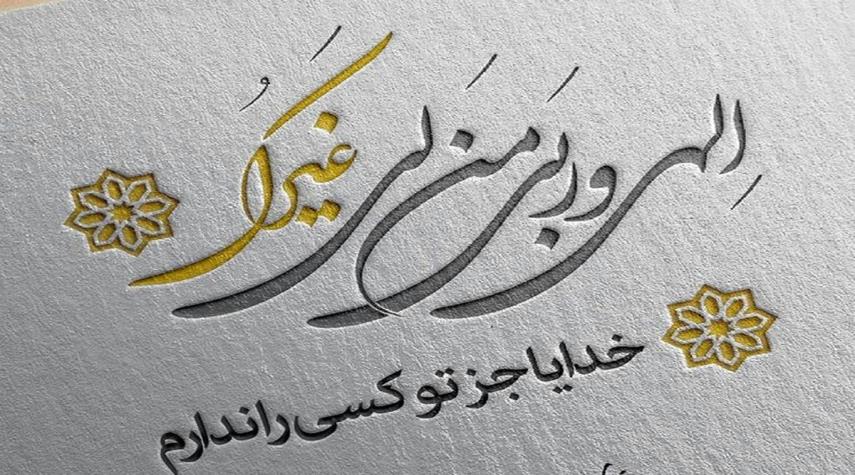 اِلهی وَربّی مَن لی غَیرُک
خدایا جز تو کسی را ندارم